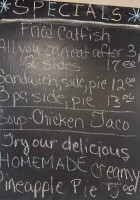 *SPECIALS*
Fried Catfish
All you can eat after 3
2 sides 17.00
Sandwich, side, pie 12.00
3 pc side, pie 13.00
Soup-Chicken Taco
Try our delicious
HOMEMADE creamy
Pineapple Pie 5.00